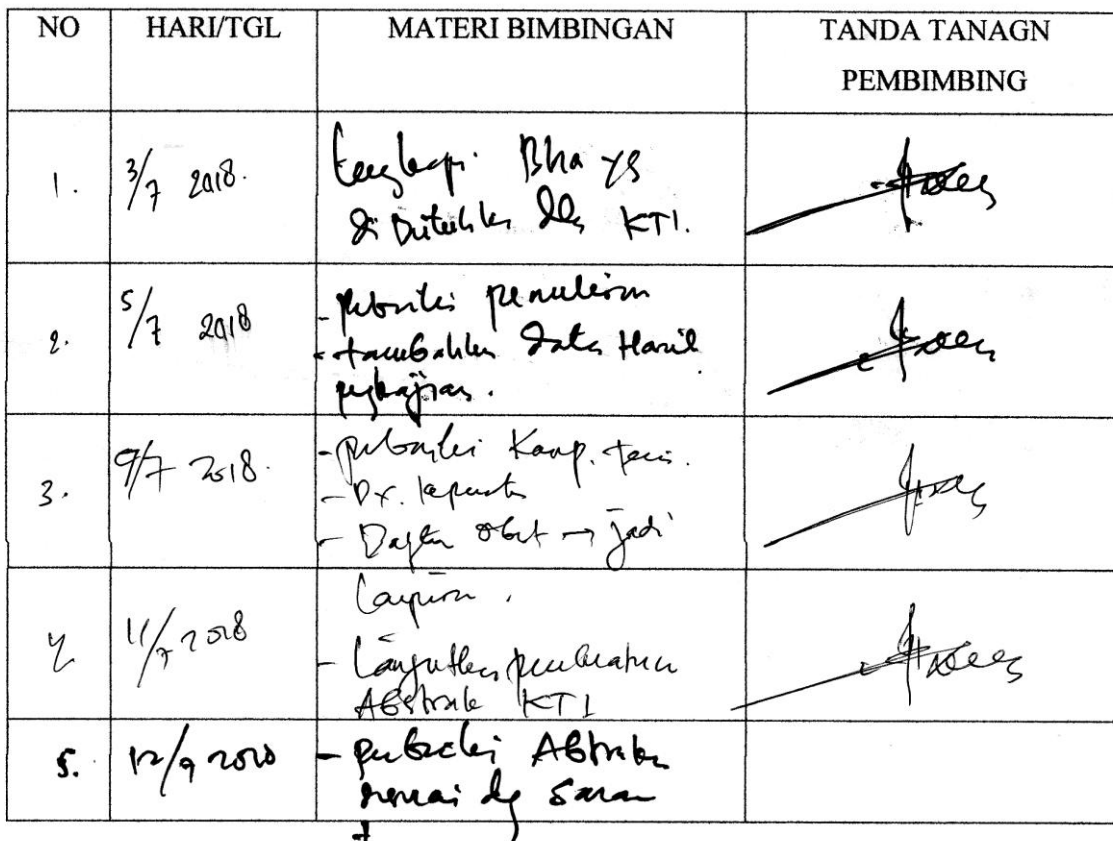 NO HARI/TGL MATERI BIMBINGAN TANDA TANAGN
PEMBIMBING
1. 3/7 2018. lengkapi Bha yg
di butuhkn dlm KTI.
2. 5/7 2018 - perbaiki penulisan
- tambahkan data Hasil
pengkajian.
3. 9/7 2018. - perbaiki Konp. teori.
- Dx. keperwtn
- Daftar obat → jadi
4 11/7 2018 Lampiran.
- Lanjutkan pembuatan
Abstrak KTI
5. 12/9 - perbaiki Abstrak
sesuai dg saran